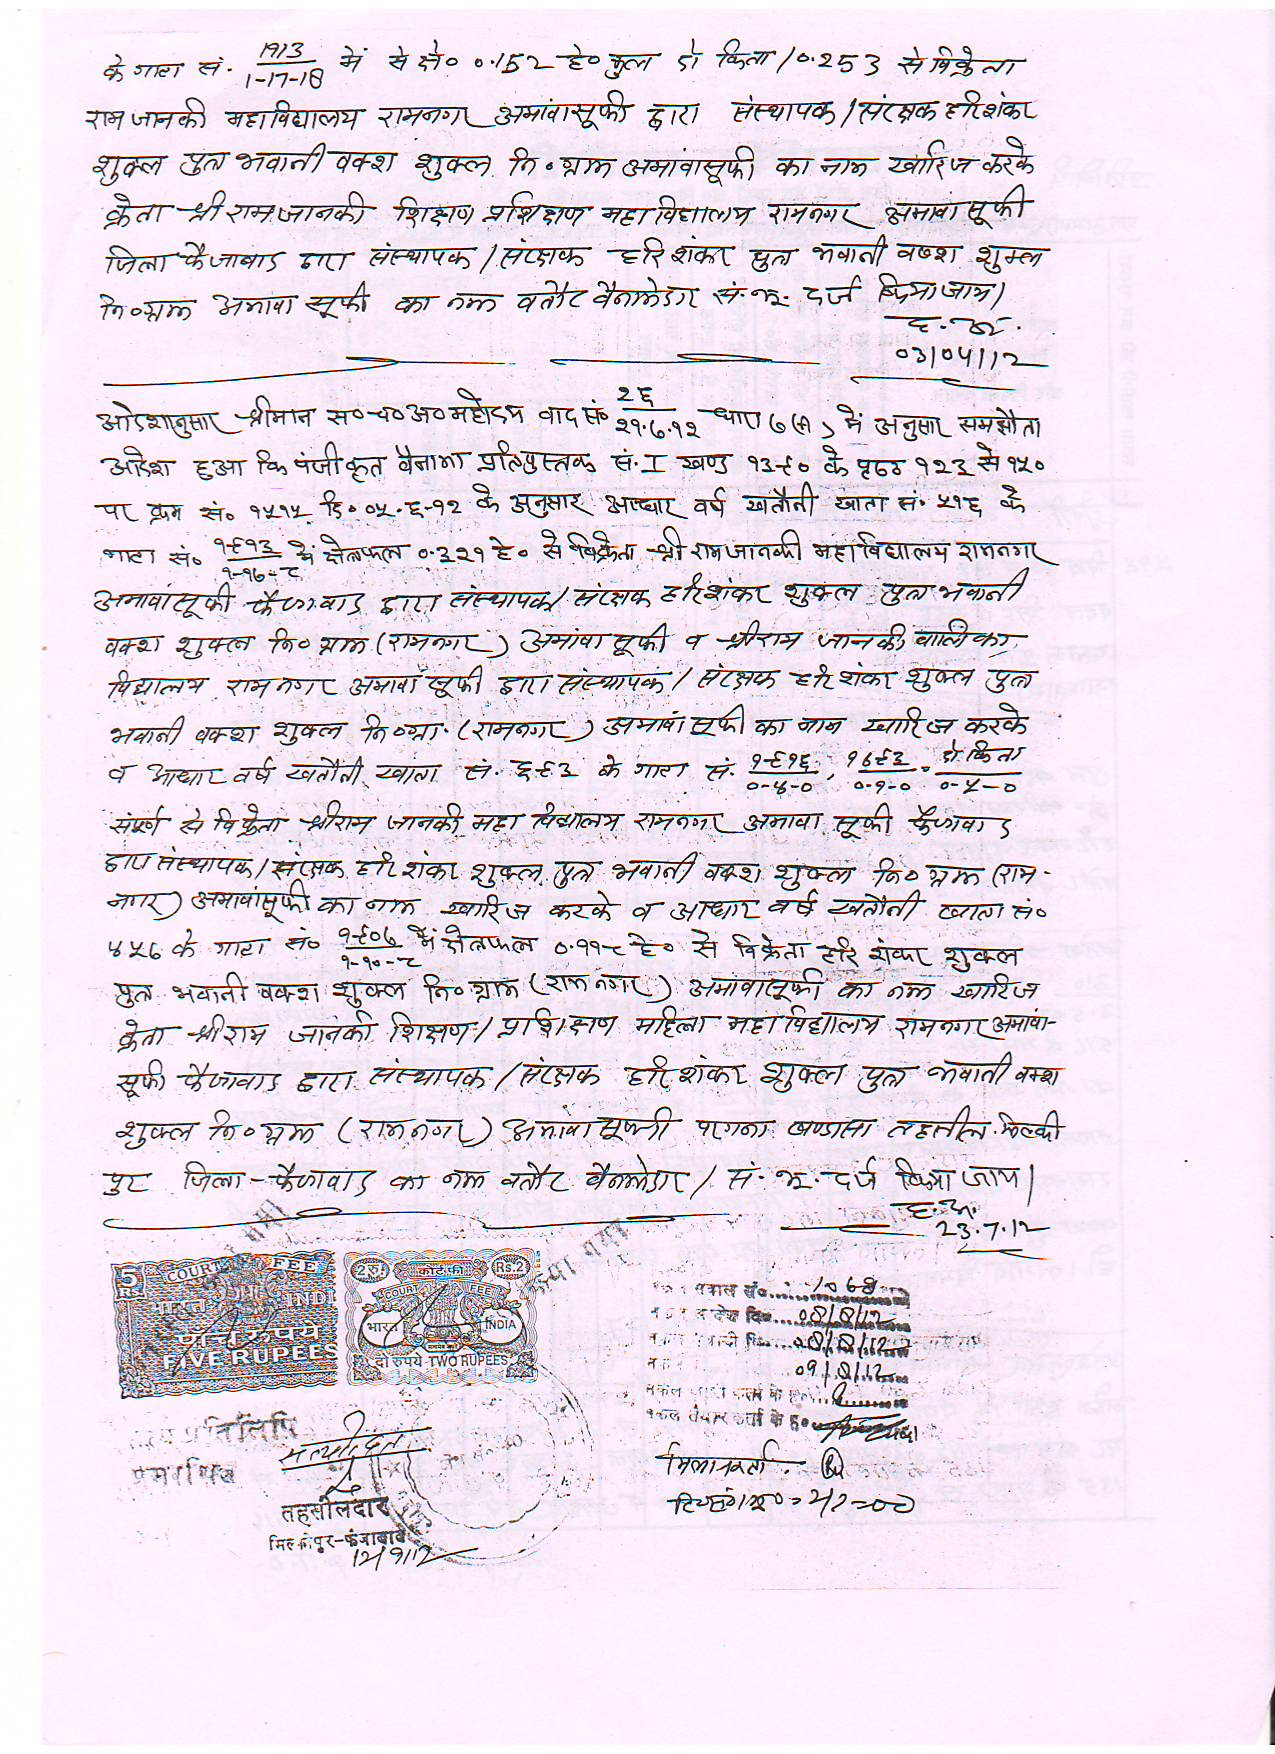 के गाटा सं. 1913/1-17-18 में से क्षे० ०.152 हे० कुल दो किता/०.253 से विक्रेता
राम जानकी महाविद्यालय रामनगर अमांवासूफी द्वारा संस्थापक/संरक्षक हरिशंकर
शुक्ल पुत्र भवानी वक्श शुक्ल नि० ग्राम अमावांसूफी का नाम खारिज करके
क्रेता श्री राम जानकी शिक्षण प्रशिक्षण महाविद्यालय रामनगर अमावा सूफी
जिला फैजाबाद द्वारा संस्थापक/संरक्षक हरिशंकर पुत्र भवानी वख्श शुक्ल
नि० ग्राम अमावा सूफी का नाम वतौर वैनामेदार सं. भू. दर्ज किया जाय।
ह. अ.
03/04/12
आदेशानुसार श्रीमान स० च० अ० महोदय वाद सं० २६/२१.७.१२ धारा ६(अ) में अनुसार समझौता
आदेश हुआ कि पंजीकृत वैनामा प्रतिपुस्तक सं. I खण्ड १३९० के पृष्ठ १२३ से १५०
पर क्रम सं० १५१५ दि० ०५.६-१२ के अनुसार आधार वर्ष खतौनी खाता सं. ५१६ के
गाटा सं० १९१३/१-१७-८ में क्षेत्रफल ०.३२१ हे० से विक्रेता श्री रामजानकी महाविद्यालय रामनगर
अमावांसूफी फैजावाद द्वारा संस्थापक/संरक्षक हरिशंकर शुक्ल पुत्र भवानी
वक्श शुक्ल नि० ग्राम (रामनगर) अमांवा सूफी व श्रीराम जानकी वालिका
विद्यालय रामनगर अमावां सूफी द्वारा संस्थापक/संरक्षक हरिशंकर शुक्ल पुत्र
भवानी वक्श शुक्ल नि० ग्रा. (रामनगर) अमावां सूफी का नाम खारिज करके
व आधार वर्ष खतौनी खाता सं. ६९३ के गाटा सं. १९१६/०-४-०, १७९३/०-१-० = दो किता/०-५-०
संपूर्ण से विक्रेता श्रीराम जानकी महा विद्यालय रामनगर अमावा सूफी फैजावाद
द्वारा संस्थापक/संरक्षक हरिशंकर शुक्ल पुत्र भवानी वक्श शुक्ल नि० ग्राम (राम-
नगर) अमावांसूफी का नाम खारिज करके व आधार वर्ष खतौनी खाता सं०
४५७ के गाटा सं० १९०७/१-१०-८ में क्षेत्रफल ०.११८ हे० से विक्रेता हरिशंकर शुक्ल
पुत्र भवानी वक्श शुक्ल नि० ग्राम (राम नगर) अमांवासूफी का नाम खारिज
क्रेता श्रीराम जानकी शिक्षण/प्रशिक्षण महिला महाविद्यालय रामनगर अमांवा-
सूफी फैजावाद द्वारा संस्थापक/संरक्षक हरिशंकर शुक्ल पुत्र भवानी वक्श
शुक्ल नि० ग्राम (रामनगर) अमांवा सूफी परगना खण्डासा तहसील मिल्की
पुर जिला-फैजावाद का नाम वतौर वैनामेदार/सं. भू. दर्ज किया जाय।
ह. अ.
23.7.12
5 Rs. COURT FEE
भारत INDI
पाँच रुपये
FIVE RUPEES
2 रु. कोर्ट फी Rs.2
COURT FEE
भारत INDIA
दो रुपये TWO RUPEES
नकल सं०....1068
08/8/12
08/8/12
09/8/12
नकल तैयार कर्ता के ह०
मिलानकर्ता.
सत्य प्रतिलिपि
प्रमाणित
सत्यापित
तहसीलदार
मिल्कीपुर-फैजाबाद
12/9/12